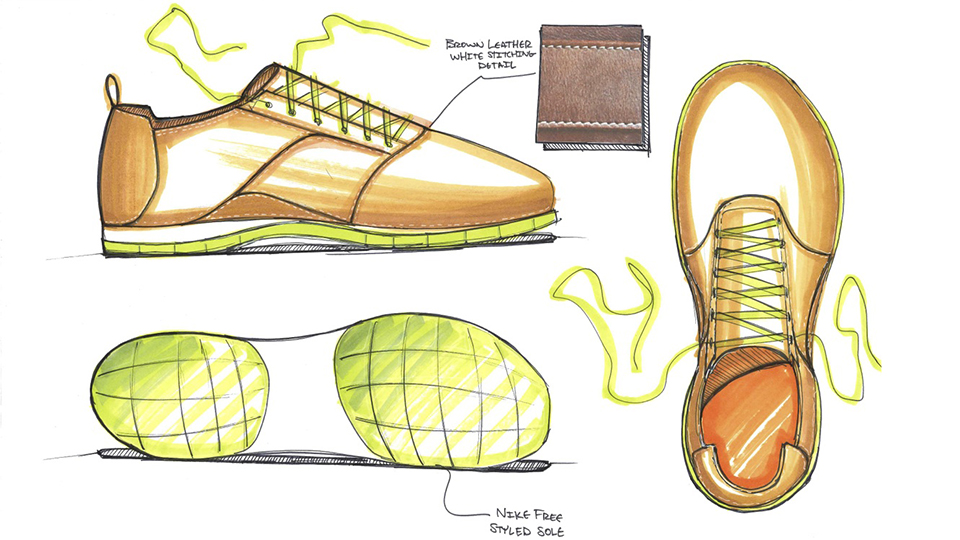 BROWN LEATHER
WHITE STITCHING
DETAIL
NIKE FREE
STYLED SOLE